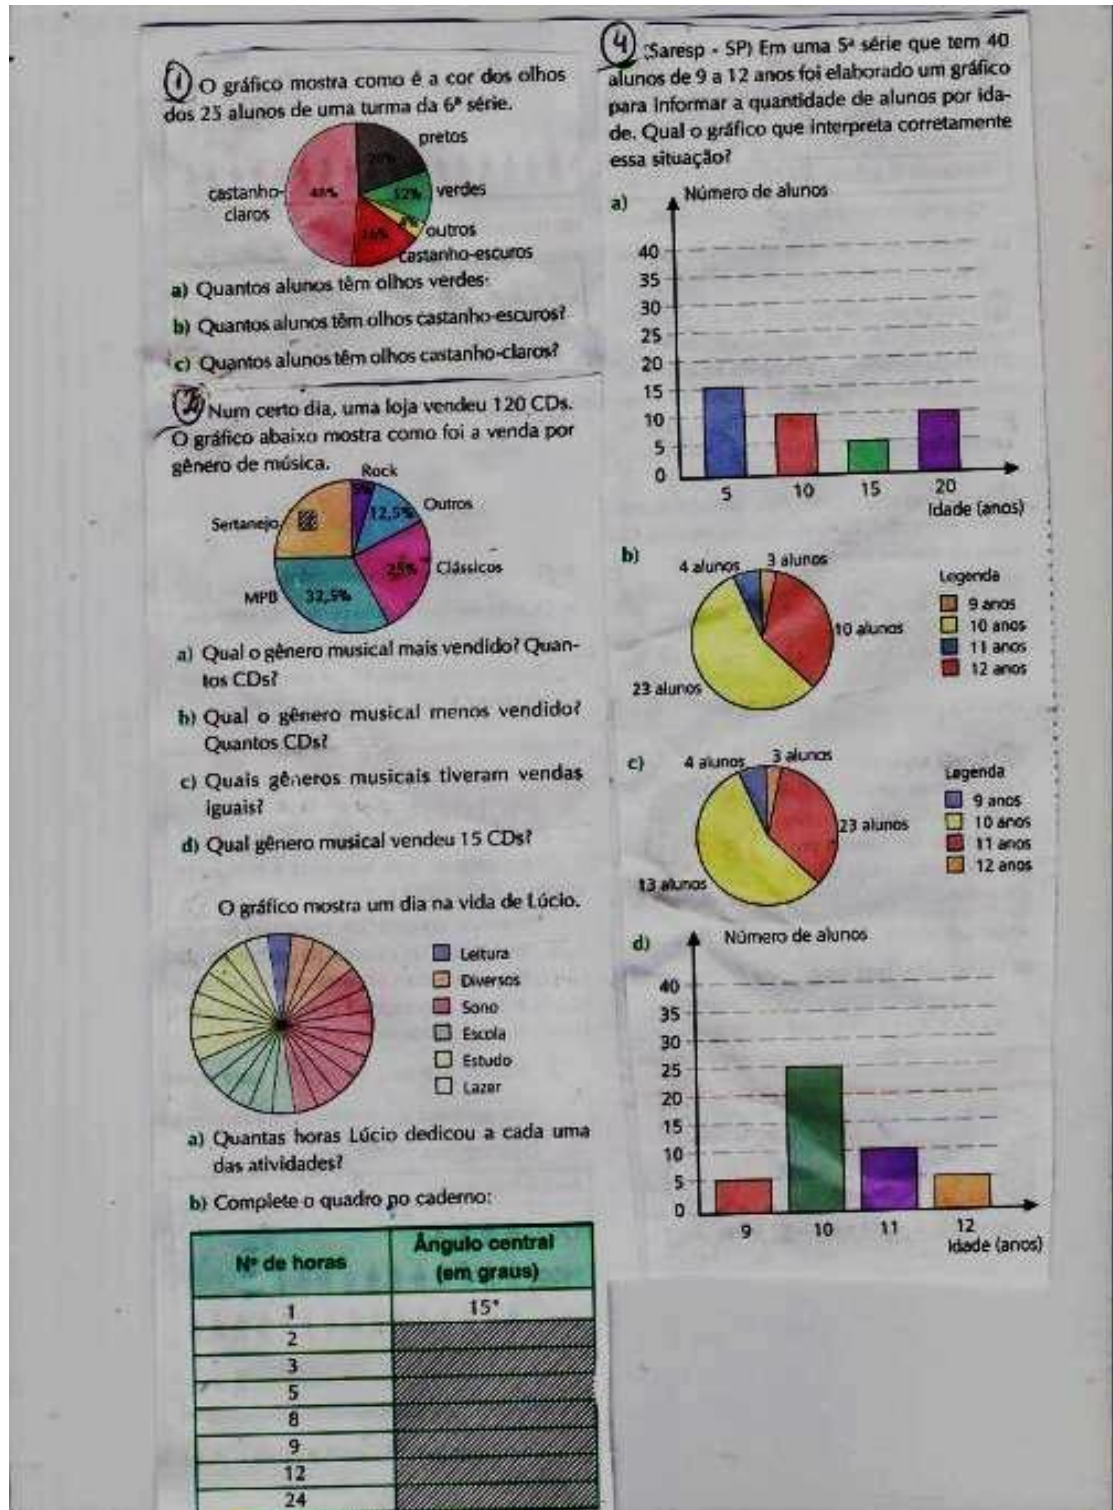 1 O gráfico mostra como é a cor dos olhos
dos 25 alunos de uma turma da 6ª série.
pretos
20%
castanho-
claros
12%
verdes
8%
outros
16%
castanho-escuros
a) Quantos alunos têm olhos verdes:
b) Quantos alunos têm olhos castanho-escuros?
c) Quantos alunos têm olhos castanho-claros?
Num certo dia, uma loja vendeu 120 CDs.
O gráfico abaixo mostra como foi a venda por
gênero de música.
Rock
5%
Outros
12,5%
Sertanejo
Clássicos
25%
MPB
32,5%
a) Qual o gênero musical mais vendido? Quan-
tos CDs?
b) Qual o gênero musical menos vendido?
Quantos CDs?
c) Quais gêneros musicais tiveram vendas
iguais?
d) Qual gênero musical vendeu 15 CDs?
O gráfico mostra um dia na vida de Lúcio.
Leitura
Diversos
Sono
Escola
Estudo
Lazer
a) Quantas horas Lúcio dedicou a cada uma
das atividades?
b) Complete o quadro no caderno:
Nº de horas
Ângulo central
(em graus)
1 15°
2
3
5
8
9
12
24
4 (Saresp - SP) Em uma 5ª série que tem 40
alunos de 9 a 12 anos foi elaborado um gráfico
para informar a quantidade de alunos por ida-
de. Qual o gráfico que interpreta corretamente
essa situação?
a) Número de alunos
40
35
30
25
20
15
10
5
0
5 10 15 20
Idade (anos)
b) 4 alunos 3 alunos
10 alunos
23 alunos
Legenda
9 anos
10 anos
11 anos
12 anos
c) 4 alunos 3 alunos
23 alunos
13 alunos
Legenda
9 anos
10 anos
11 anos
12 anos
d) Número de alunos
40
35
30
25
20
15
10
5
0
9 10 11 12
Idade (anos)